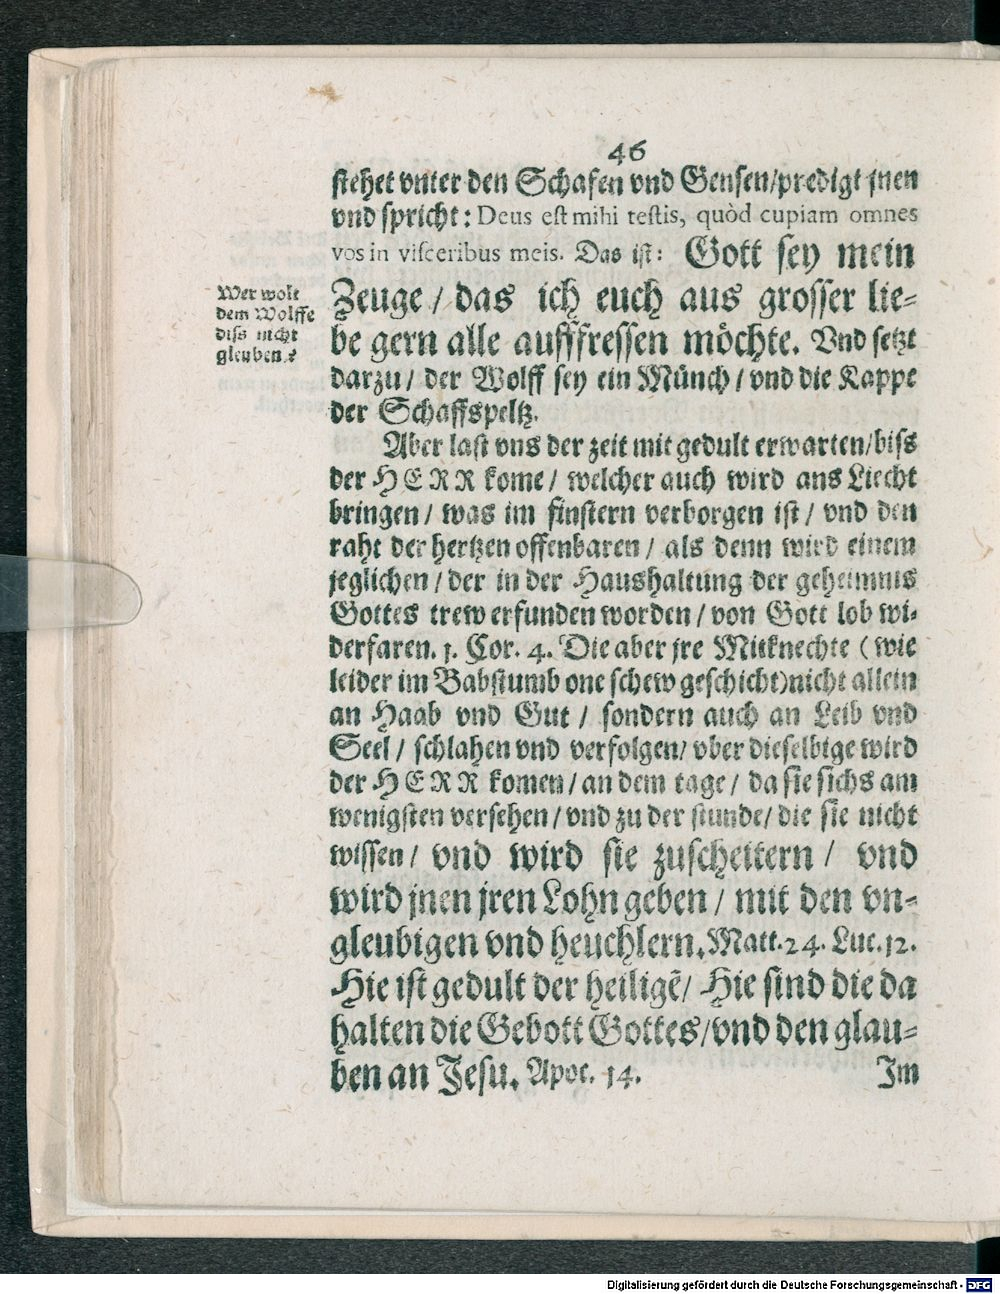 46
stehet vnter den Schafen vnd Gensen/predigt jnen
vnd spricht: Deus est mihi testis, quòd cupiam omnes
vos in visceribus meis. Das ist: Gott sey mein
Wer wolt
dem Wolffe
diss nicht
gleuben?
Zeuge / das ich euch aus grosser lie-
be gern alle aufffressen möchte. Vnd setzt
darzu / der Wolff sey ein Münch / vnd die Kappe
der Schaffspeltz.
Aber last vns der zeit mit gedult erwarten/biss
der HERR kome / welcher auch wird ans Liecht
bringen / was im finstern verborgen ist / vnd den
raht der hertzen offenbaren / als denn wird einem
jeglichen / der in der Haushaltung der geheimnus
Gottes trew erfunden worden / von Gott lob wi-
derfaren. 1. Cor. 4. Die aber jre Mitknechte (wie
leider im Babstumb one schew geschicht)nicht allein
an Haab vnd Gut / sondern auch an Leib vnd
Seel / schlahen vnd verfolgen/ vber dieselbige wird
der HERR komen / an dem tage / da sie sichs am
wenigsten versehen / vnd zu der stunde/ die sie nicht
wissen / vnd wird sie zuscheittern / vnd
wird jnen jren Lohn geben / mit den vn-
gleubigen vnd heuchlern. Matt. 24. Luc. 12.
Hie ist gedult der heiligẽ/ Hie sind die da
halten die Gebott Gottes/vnd den glau-
ben an Jesu. Apoc. 14.
Im
Digitalisierung gefördert durch die Deutsche Forschungsgemeinschaft - DFG